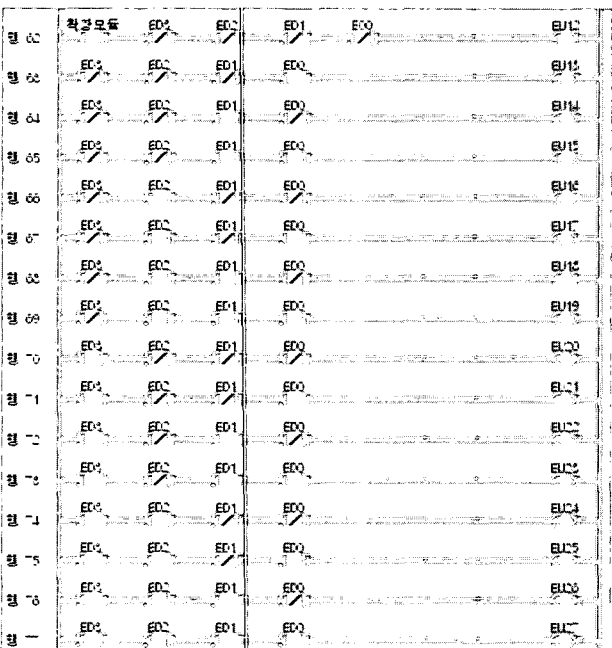 62 확장모듈 ED3 ED2 ED1 ED0 EU12
63 ED3 ED2 ED1 ED0 EU13
64 ED3 ED2 ED1 ED0 EU14
65 ED3 ED2 ED1 ED0 EU15
66 ED3 ED2 ED1 ED0 EU16
67 ED3 ED2 ED1 ED0 EU17
68 ED3 ED2 ED1 ED0 EU18
69 ED3 ED2 ED1 ED0 EU19
70 ED3 ED2 ED1 ED0 EU20
71 ED3 ED2 ED1 ED0 EU21
72 ED3 ED2 ED1 ED0 EU22
73 ED3 ED2 ED1 ED0 EU23
74 ED3 ED2 ED1 ED0 EU24
75 ED3 ED2 ED1 ED0 EU25
76 ED3 ED2 ED1 ED0 EU26
ED3 ED2 ED1 ED0 EU27